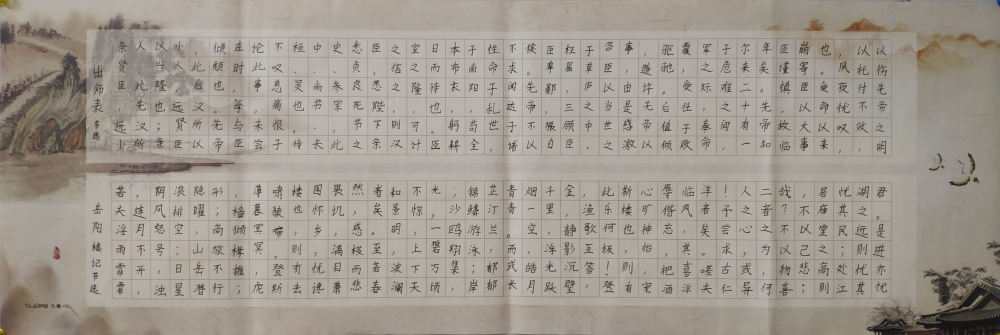 出师表 节选
亲贤臣，远小
人，此先汉所
以兴隆也；亲
小人，远贤臣
，此后汉所以
倾颓也。先帝
在时，每与臣
论此事，未尝
不叹息痛恨于
桓、灵也。侍
中、尚书、长
史、参军，此
悉贞良死节之
臣，愿陛下亲
之信之，则汉
室之隆，可计
日而待也。臣
本布衣，躬耕
于南阳，苟全
性命于乱世，
不求闻达于诸
侯。先帝不以
臣卑鄙，猥自
枉屈，三顾臣
于草庐之中，
咨臣以当世之
事，由是感激
，遂许先帝以
驱驰。后值倾
覆，受任于败
军之际，奉命
于危难之间，
尔来二十有一
年矣。先帝知
臣谨慎，故临
崩寄臣以大事
也。受命以来
，夙夜忧叹，
以托付不效，
以伤先帝之明
岳阳楼记节选
若夫淫雨霏霏
，连月不开，
阴风怒号，浊
浪排空；日星
隐曜，山岳潜
形；商旅不行
，樯倾楫摧；
薄暮冥冥，虎
啸猿啼。登斯
楼也，则有去
国怀乡，忧谗
畏讥，满目萧
然，感极而悲
者矣。至若春
和景明，波澜
不惊，上下天
光，一碧万顷
；沙鸥翔集，
锦鳞游泳；岸
芷汀兰，郁郁
青青。而或长
烟一空，皓月
千里，浮光跃
金，静影沉璧
，渔歌互答，
此乐何极！登
斯楼也，则有
心旷神怡，宠
辱偕忘，把酒
临风，其喜洋
洋者矣。嗟夫
！予尝求古仁
人之心，或异
二者之为，何
哉？不以物喜
，不以己悲；
居庙堂之高则
忧其民；处江
湖之远则忧其
君。是进亦忧